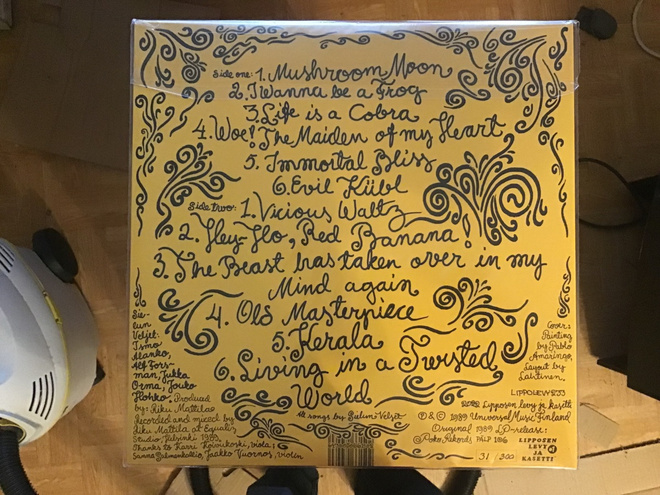 Side one: 1. Mushroom Moon
2. I Wanna be a Frog
3. Life is a Cobra
4. Woe! The Maiden of my Heart
5. Immortal Bliss
6. Evil Kübl
Side two: 1. Vicious Waltz
2. Hey-Ho, Red Banana!
3. The Beast has taken over in my
Mind again
4. Old Masterpiece
5. Kerala
6. Living in a Twisted
World
All songs by
Sie-
lun
Veljet:
Ismo
Alanko,
Alf Fors-
man, Jukka
Orma, Jouko
Hohko. Produced
by: Riku Mattila
Recorded and mixed by
Riku Mattila at
Studio, Helsinki 1989.
Thanks to Harri viola;
Sanna Salmenkallio, Jaakko Vuornos, violin
Cover
Painting
by Pablo
Amaringo,
Layout by
Laitinen.
LIPPOLEVY
Lipposen levy ja kasetti
℗ & © 1989 Universal Music Finland
Original 1989 LP-release:
Poko Rekords PÄLP
31 / 300
LIPPOSEN
LEVY
JA
KASETTI